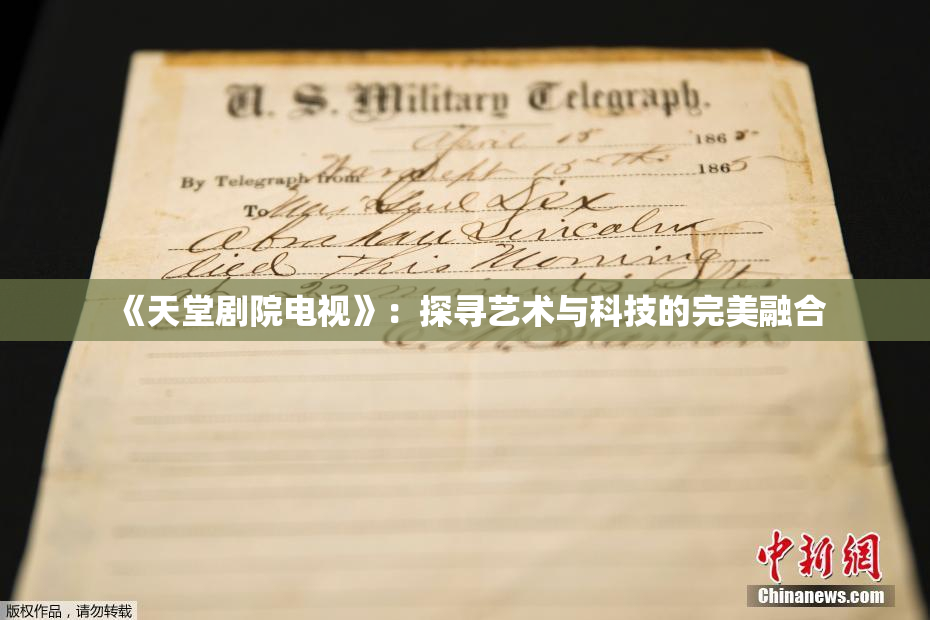 U. S. Military Telegraph.
April 15 1865
By Telegraph from War Dept 15th 1865
To Maj Genl Dix
Abraham Lincoln
died This Morning
at 22 minutes after
《天堂剧院电视》：探寻艺术与科技的完美融合
E. M. Stanton
中新网
Chinanews.com
版权作品，请勿转载